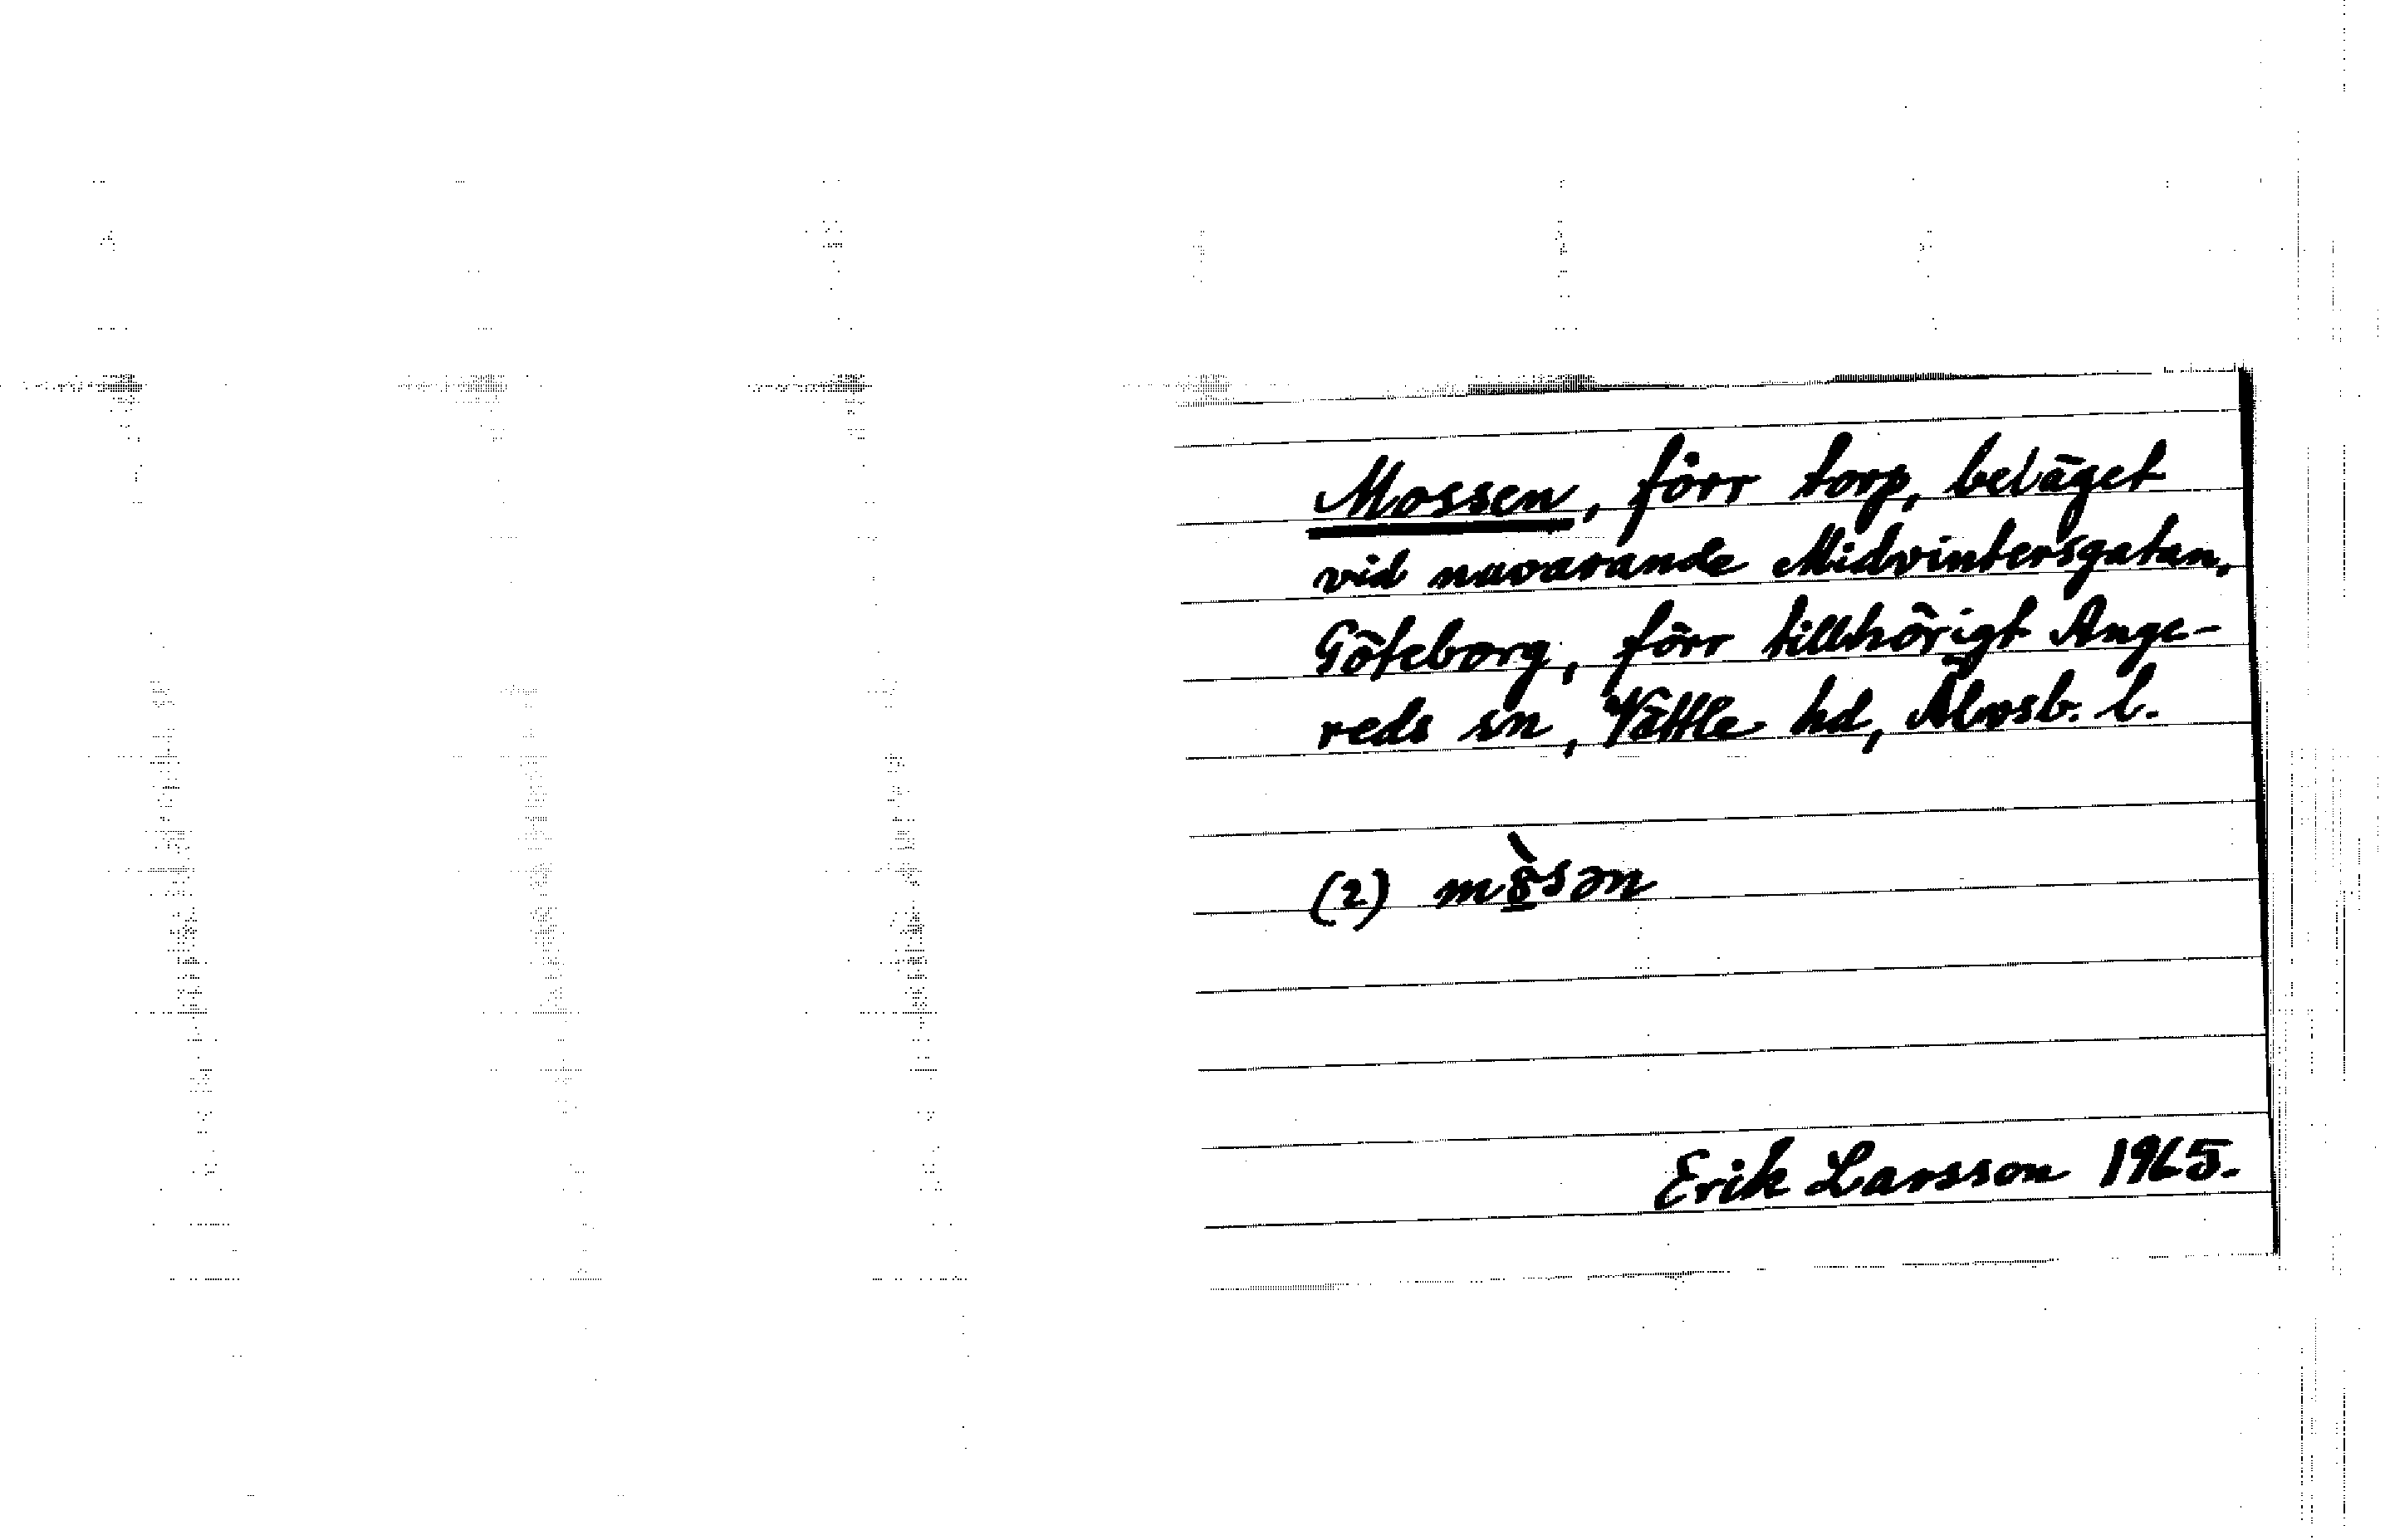 Mossen, förr torp, beläget
vid nuvarande Midvintersgatan,
Göteborg, förr tillhörigt Ange-
reds sn, Vättle hd, Älvsb. l.
(2) mò᷂sən
Erik Larsson 1965.